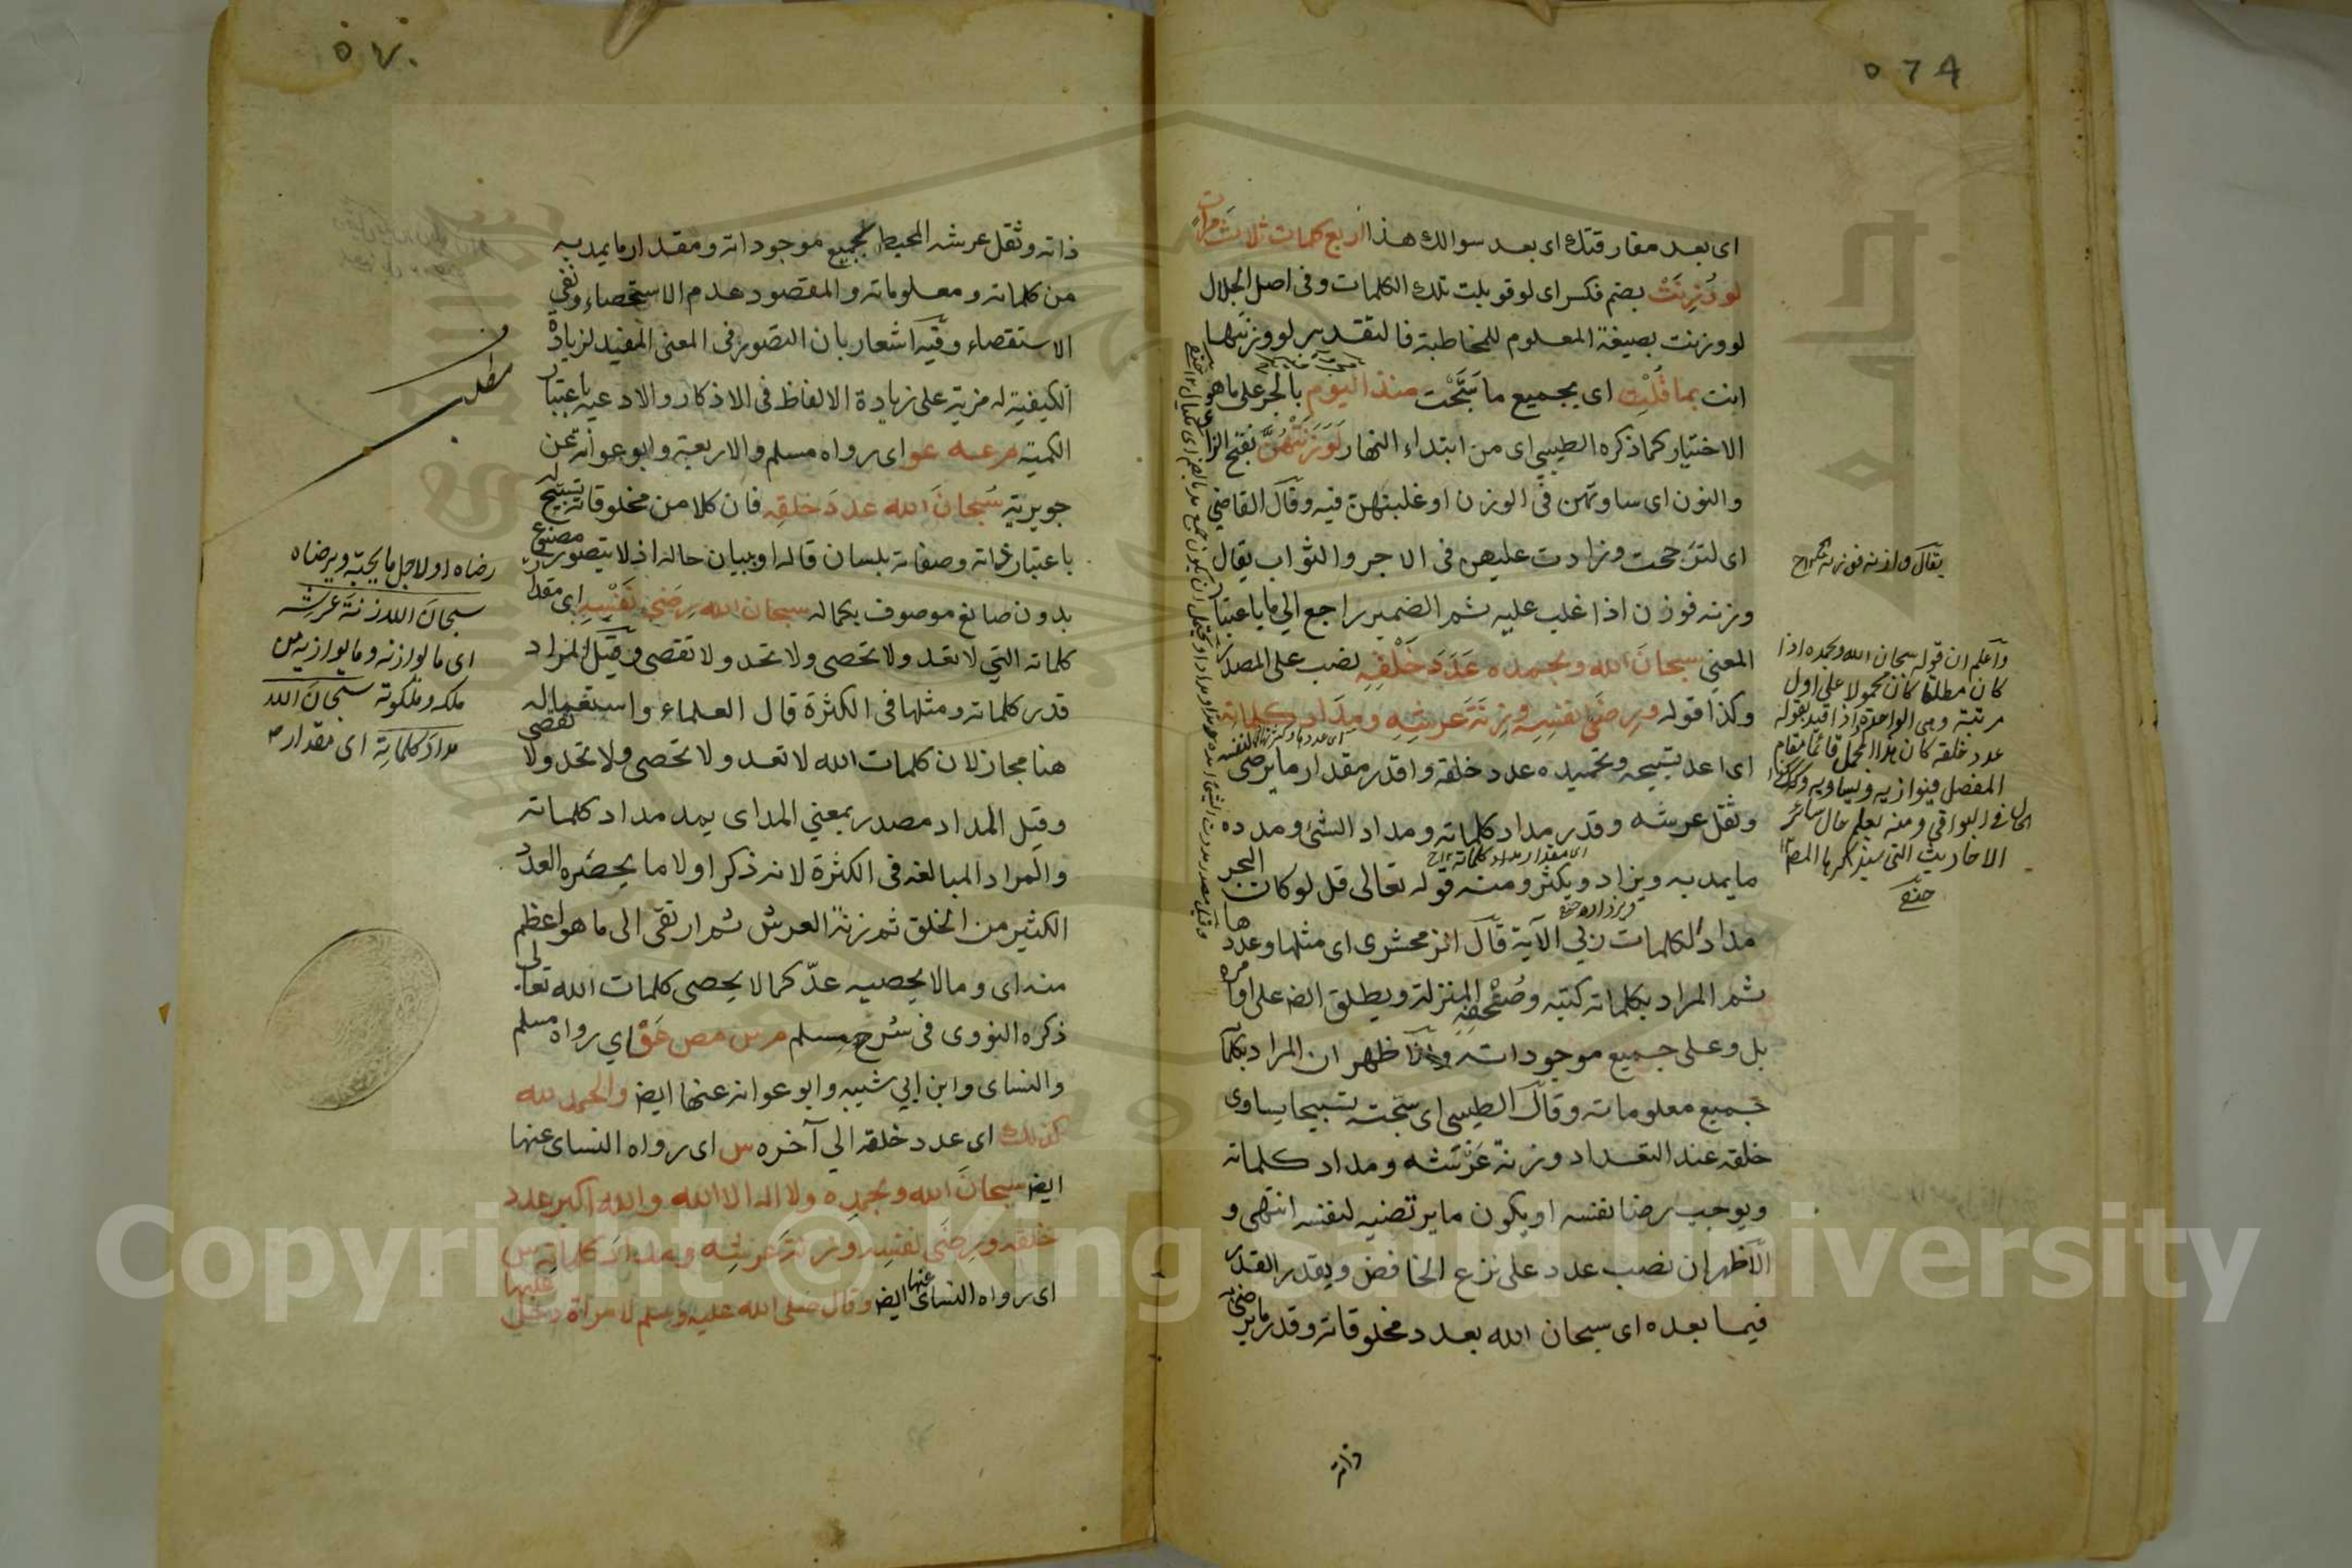 ٥٦٩
اى بعد مفارقتك اى بعد سوالك هذا اربع كلمات ثلاث مرات
لو وُزِنَتْ بضم فكسر اى لو قوبلت تلك الكلمات وفى اصل الجلال
لو وزنت بصيغة المعلوم للمخاطبة فالتقدير لو وزنتها
انت بما قُلْتِ اى بجميع ما سَبَّحْت منذ اليوم بالجر على ما هو
الاختيار كما ذكره الطيبي اى من ابتداء النهار لَوَزَنَتْهُنَّ بفتح الزا
والنون اى ساوتهن فى الوزن او غلبتهن فيه وقال القاضي
اى لترجحت وزادت عليهن فى الاجر والثواب يقال
وزنه فوزن اذا غلب عليه ثم الضمير راجع الي ما باعتبار
المعنى سبحانَ الله وبحمده عَدَدَ خَلْقِهِ نصب على المصدر
وكذا قوله ورِضَى نفسِه وزِنَةَ عرشِهِ ومِدَاد كلماته
اى اعد تسبيحه وتحميده عدد خلقه واقدر مقدار ما يرضى لنفسه
وثقل عرشه وقدر مداد كلماته ومداد الشئ ومدده
ما يمد به ويزاد ويكثر ومنه قوله تعالى قل لو كان البحر
مدادا لكلمات ربي الآية قال الزمخشرى اى مثلها وعددها
ثم المراد بكلماته كتبه وصُحُفِه المنزلة ويطلق ايضا على اوامره
بل وعلى جميع موجوداته ولذا ظهر ان المراد بكلما
جميع معلوماته وقال الطيبى اى سبحته تسبيحا يساوى
خلقه عند التعداد وزنة عَرْشه ومداد كلماته
ويوجب رضا نفسه او يكون ما يرتضيه لنفسه انتهى و
الاظهر ان نصب عدد على نزع الخافض ويقدر القدر
فيما بعده اى سبحان الله بعدد مخلوقاته وقدر ما يرضى
ذاته
يقال وازنه فوزنه
واعلم ان قوله سبحان الله وبحمده اذا
كان مطلقا كان محمولا على اول
مرتبة وهى الواحدة واذا قيد بقوله
عدد خلقه كان هذا المجمل قائما مقام
المفصل فيوازيه ويساويه وكذلك
الحال فى البواقي ومنه يعلم حال سائر
الاحاديث التى سيذكرها المص
حنفى
٥٧٠
ذاته وثقل عرشه المحيط بجميع موجوداته ومقدار ما يمد به
من كلماته ومعلوماته والمقصود عدم الاستحصاء ونفي
الاستقصاء وفيه اشعار بان التصور فى المعنى المفيد لزيادة
الكيفية له مزية على زيادة الالفاظ فى الاذكار والادعيه باعتبار
الكمية مرعه عو اى رواه مسلم والاربعة وابو عوانة عن
جويرية سُبحانَ الله عددَ خلقِه فان كلا من مخلوقاته تسبيح له
باعتبار ذاته وصفاته بلسان قاله او ببيان حاله اذ لا يتصور مصنوع
بدون صانع موصوف بكماله سبحان الله رِضَى نَفْسِهِ اى مقدار
كلماته التي لا تعد ولا تحصى ولا تحد ولا تقصى وقيل المراد
قدر كلماته ومثلها فى الكثرة قال العلماء واستعماله
هنا مجاز لان كلمات الله لا تعد ولا تحصى ولا تحد ولا تقصى
وقيل المداد مصدر بمعني المد اى يمد مداد كلماته
والمراد المبالغه فى الكثرة لانه ذكر اولا ما يحصره العدد
الكثير من الخلق ثم زنة العرش ثم ارتقى الى ما هو اعظم
منه اى وما لا يحصيه عدّ كما لا يحصى كلمات الله تعالى
ذكره النووى فى شرح مسلم مرس مص عَوْ اي رواه مسلم
والنساى وابن ابي شيبه وابو عوانه عنها ايضا والحمد لله
كذلك اى عدد خلقه الي آخره س اى رواه النساى عنها
ايضا سبحانَ الله وبحمدِه ولا اله الا الله والله اكبر عدد
خلقه ورِضَى نفسِه وزنةَ عَرشِه ومدادَ كلماتِه س
اى رواه النساى عنها ايضا وقال صلى الله عليه وسلم لامراة دخل عليها
مطلب
رضاه او لاجل ما يحبه ويرضاه
سبحان الله زنةَ عرشه
اى ما يوازنه وما يوازيه من
ملكه وملكوته سبحان الله
مدادَ كلماتِه اى مقدار
Copyright © King Saud University